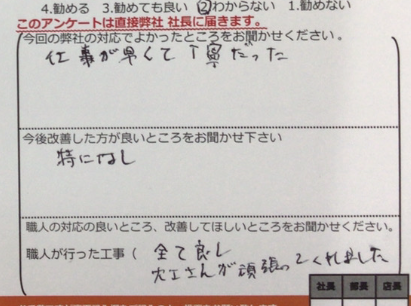 4.勧める 3.勧めても良い ②わからない 1.勧めない
このアンケートは直接弊社 社長に届きます。
今回の弊社の対応でよかったところをお聞かせください。
仕事が早くて丁寧だった
今後改善した方が良いところをお聞かせ下さい
特になし
職人の対応の良いところ、改善してほしいところをお聞かせください。
職人が行った工事( 全て良し
大工さんが頑張ってくれました
社長 部長 店長